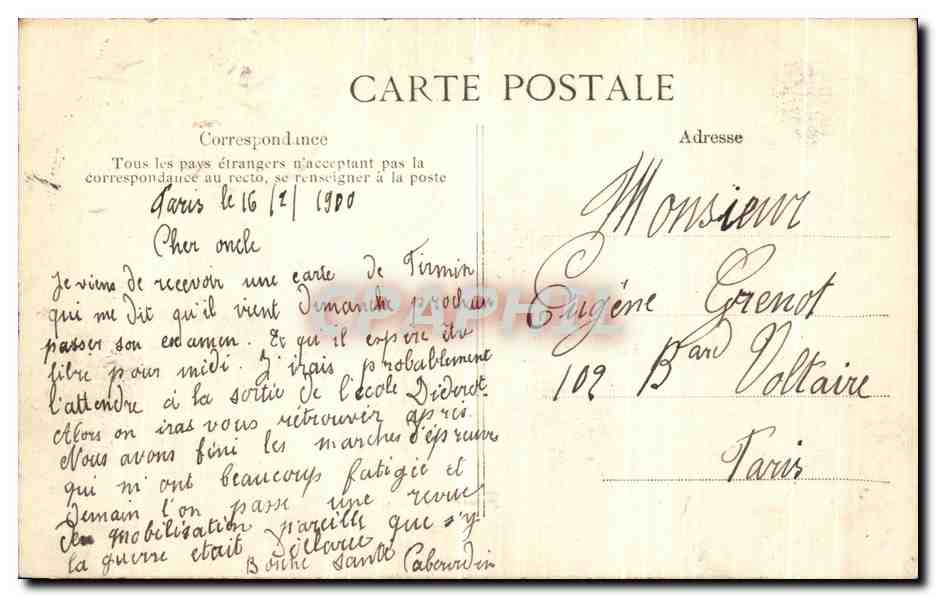 CARTE POSTALE
Correspondance
Tous les pays étrangers n'acceptant pas la
correspondance au recto, se renseigner à la poste
Paris le 16/2/1900
Cher oncle
Je viens de recevoir une carte de Firmin
qui me dit qu'il vient dimanche prochain
passer son examen. Et qu'il espère être
libre pour midi. J'irais probablement
l'attendre à la sortie de l'école Diderot.
Alors on iras vous retrouver après.
Nous avons fini les marches d'épreuve
qui m'ont beaucoup fatigié et
demain l'on passe une revue
de mobilisation pareille que s'y
la guerre etait déllaree
Bonne santé
Adresse
Monsieur
Eugène Grenot
102 Bard Voltaire
Paris
CPAPHIL